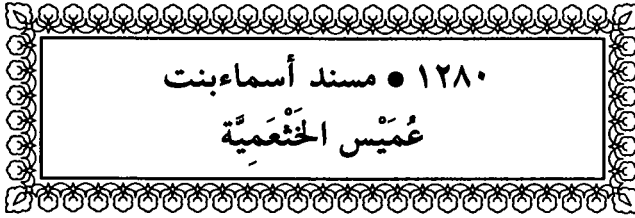 ١٢٨٠ ● مسند أسماء بنت
عُمَيْس الخَثْعَمِيَّة